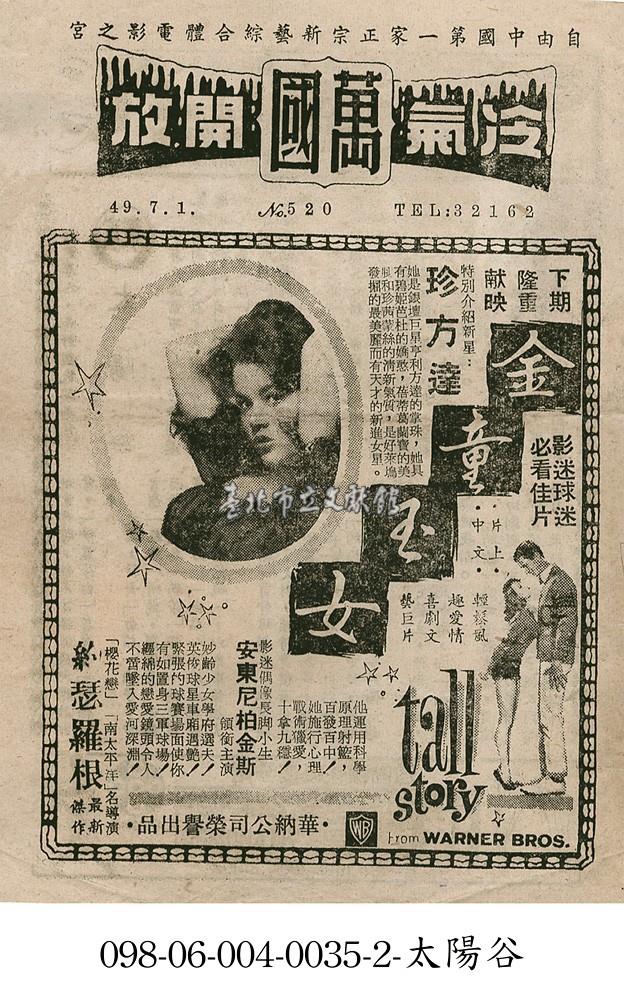 自由中國第一家正宗新藝綜合體電影之宮
冷氣 萬國 開放
49.7.1. No.520 TEL:32162
下期
隆重
献映
金童玉女
影迷球迷
必看佳片
片上
中文
輕鬆風
趣愛情
喜劇文
藝巨片
特別介紹新星：
珍方達
她是銀壇巨星亨利方達的掌珠，她具
有碧姬芭杜的嬌憨，蓓蒂葛蘭寶的美
腿和珍茜蒙絲的清新氣質，是好萊塢
發掘的最美麗而有天才的新進女星。
臺北市立文獻館
他運用科學
原理射籃，
百發百中！
她施行心理
戰術獵愛，
十拿九穩！
影迷偶像長脚小生
安東尼柏金斯
領衔主演
妙齡少女學府選夫！
英俊球星車厢遇艷！
緊張的球賽塲面使你
有如置身三軍球場！
纏綿的戀愛鏡頭令人
不啻墜入愛河深淵！
「櫻花戀」「南太平洋」名導演
約瑟羅根
最新
傑作
tall
story
From WARNER BROS.
WB
•華納公司榮譽出品•
098-06-004-0035-2-太陽谷